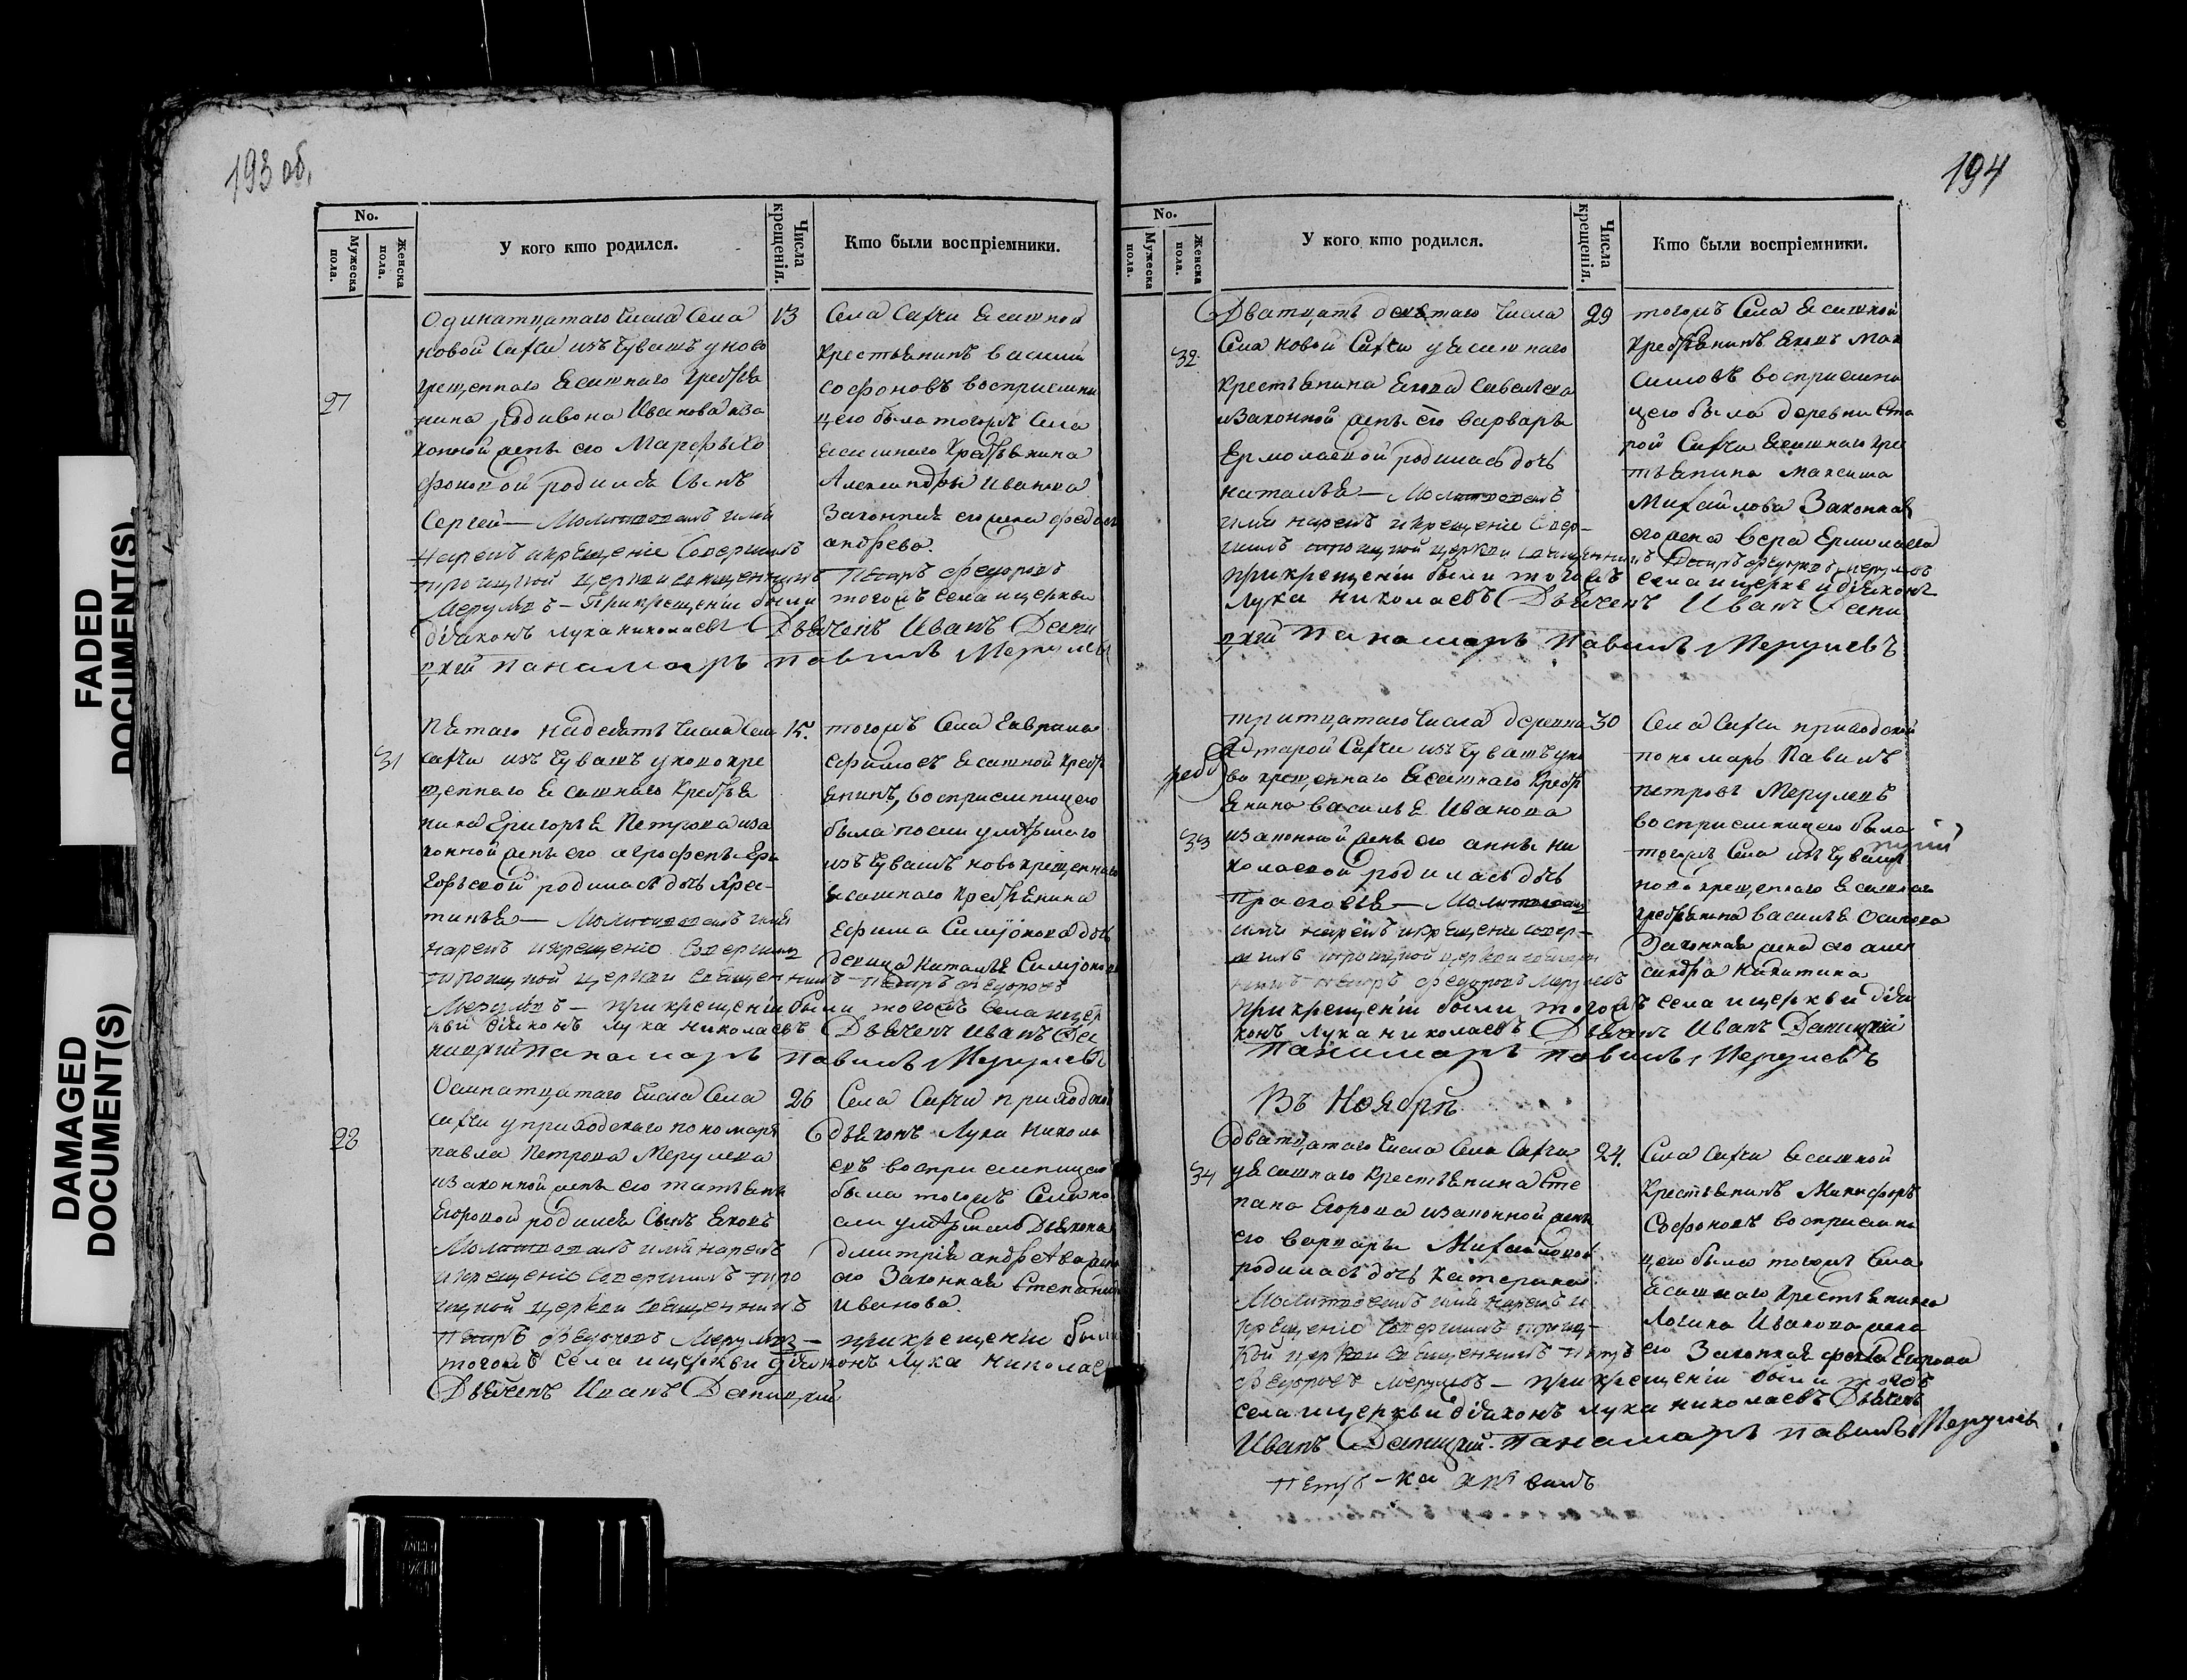 193 об.
No.
Мужеска пола.
Женска пола.
У кого кто родился.
Числа крещенія.
Кто были воспріемники.
27
Одинатцатаго Числа Села
новой Сахчи изъ Чувашъ у ново
крещеннаго Ясашнаго
нина Родивона Иванова иза
конной жены его Марефы Со
фоновой родился Сынъ
Сергей — Молитвовалъ имя
Нарекъ и крещеніе Совершилъ
троицкой церкви священникъ Петръ Федоровъ
Мерулевъ — При крещеніи были тогожъ села и церкви
діаконъ Лука Николаевъ Дьячекъ Иванъ Дани
цкій Панамарь Павилъ Мерулевъ
13
Села Сахчи Ясашной
Крестьянинъ Василий
Софоновъ восприемни
цею была тогожъ Села
Ясашнаго
Александры Иванова
Законная его жена
андрева.
31
Пятаго надесять Числа Села
сахчи изъ Чувашъ у новокре
щеннаго Ясашнаго
Григорья Петрова иза
конной жены его
родилась дочь Хрис-
тинья — Молитвовалъ имя
нарекъ и крещеніе Совершилъ
троицкой церкви священникъ Петръ Федоровъ
Мерулевъ — при крещеніи были тогожъ Села и цер
кви діаконъ Лука Николаевъ Дьячекъ Иванъ Да
ницкій Панамарь Павилъ Мерулевъ
15.
тогожъ Села Гаврила
Ефимовъ Ясашной
янинъ, восприемницею
была
изъ Чувашъ новокрещеннаго
Ясашнаго
Ефима Симіонова дочь
девица Наталья Симіонова
28
Осмнатцатаго Числа Села
сахчи у приходскаго пономаря
павла Петрова Мерулева
изаконной жены его татьяны
Егоровой родился Сынъ Яковъ
Молитвовалъ имя нарекъ
и крещеніе Совершилъ тро
ицкой церкви священникъ
Петръ Федоровъ Мерулевъ — при крещеніи были
тогожъ села и церкви діаконъ Лука Николаевъ
Дьячекъ Иванъ Даницкій
26
Села Сахчи приходской
дьяконъ Лука Никола
евъ восприемницею
была тогожъ Села
Дьякона
дмитрія андреева жена
его Законная Степанида
Иванова.
194
No.
Мужеска пола.
Женска пола.
У кого кто родился.
Числа крещенія.
Кто были воспріемники.
32
Дватцать девятаго Числа
Села новой Сахчи у Ясашнаго
крестьянина Якова Савельева
изаконной жены его варвары
Ермолаевой родилась дочь
наталья — Молитвовалъ
имя нарекъ и крещеніе Совер-
шилъ троицкой церкви священникъ Петръ Федоровъ Мерулевъ
при крещеніи были тогожъ села и церкви діаконъ
Лука Николаевъ Дьячекъ Иванъ Дани
цкій Панамарь Павилъ Мерулевъ
29
тогожъ Села Ясашной
Яковъ Мак
симовъ восприемни
цею была деревни Ста
рой Сахчи Ясашнаго кре
тьянина Максима
Михайлова Законная
его жена Вера Ермолаева
33
тритцатаго Числа деревни
Старой Сахчи изъ Чувашъ у но
во крещеннаго Ясашнаго
янина василья Иванова
изаконной жены его анны ни
колаевой родилась дочь
Прасковья — Молитвовалъ
имя нарекъ и крещеніе совер-
шилъ троицкой церкви священ
никъ Петръ Федоровъ Мерулевъ
при крещеніи были тогожъ села и церкви діа
конъ Лука Николаевъ Дьячекъ Иванъ Даницкій
Панамарь Павилъ Мерулевъ
30
Села Сахчи приходской
пономарь Павилъ
петровъ Мерулевъ
восприемницею была
тогожъ Села изъ Чувашъ
новокрещеннаго Ясашнаго
василья Осипова
Законная жена его алек
сандра Никитина
Въ Ноябрѣ
34
дватцатаго Числа Села Сахчи
у Ясашнаго Крестьянина Сте
пана Егорова изаконной жены
его варвары Михайловой
родилась дочь Катерина
Молитвовалъ имя нарекъ и
крещеніе Совершилъ троиц-
кой церкви священникъ Петръ
Федоровъ Мерулевъ — при крещеніи были тогожъ
села и церкви діаконъ Лука Николаевъ Дьячекъ
Иванъ Даницкій. Панамарь Павилъ Мерулевъ
24.
Села Сахчи Ясашной
Крестьянинъ Никифоръ
Софоновъ восприемни
цею была тогожъ Села
Ясашнаго Крестьянина
Логина Иванова жена
его Законная Егорова
FADED DOCUMENT(S)
DAMAGED DOCUMENT(S)